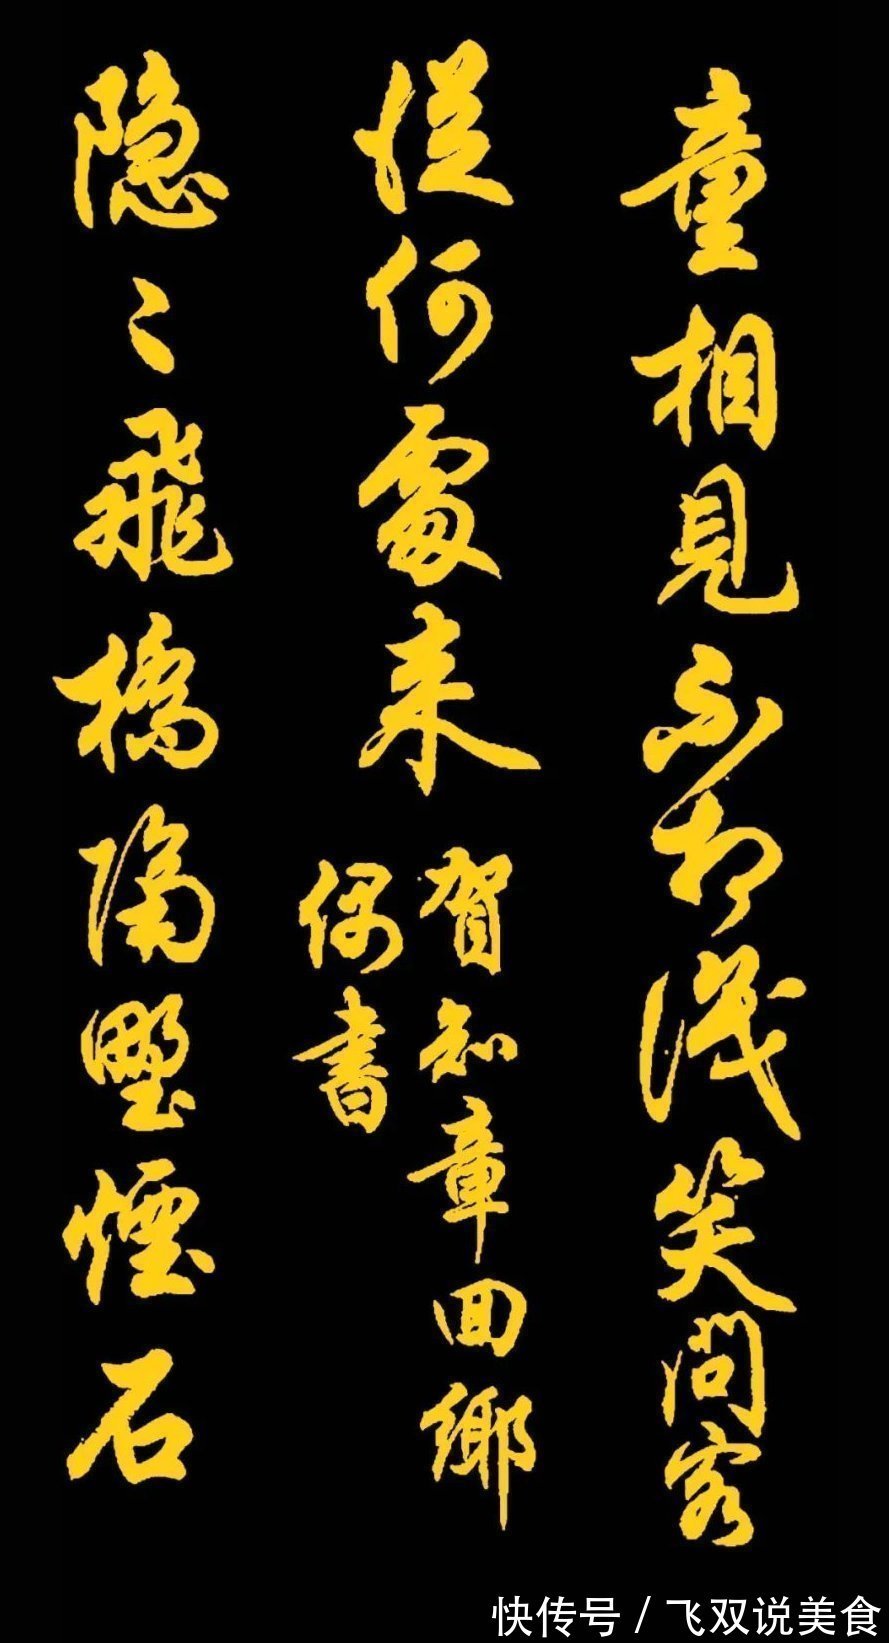 童相見不相識笑問客
從何處来
賀知章回鄉
偶書
隐〻飛橋隔野煙石
快传号 / 飞双说美食